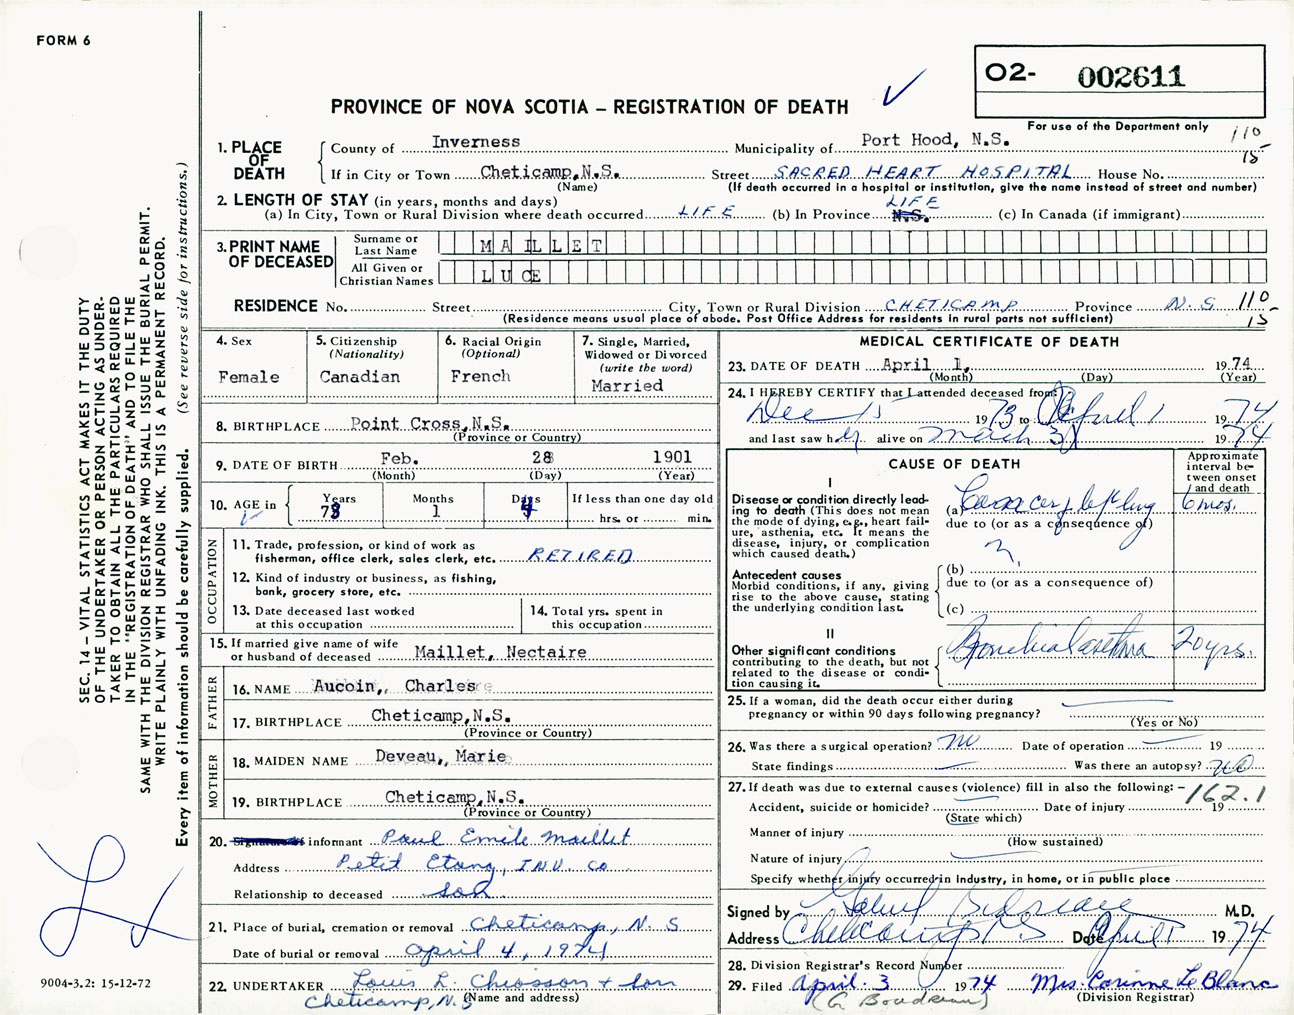 FORM 6
O2- 002611
PROVINCE OF NOVA SCOTIA – REGISTRATION OF DEATH
For use of the Department only
110
15
1. PLACE OF DEATH
County of Inverness Municipality of Port Hood, N.S.
If in City or Town Cheticamp,N.S. Street SACRED HEART HOSPITAL House No.
(Name) (If death occurred in a hospital or institution, give the name instead of street and number)
2. LENGTH OF STAY (in years, months and days)
(a) In City, Town or Rural Division where death occurred LIFE (b) In Province LIFE N.S. (c) In Canada (if immigrant)
3. PRINT NAME OF DECEASED
Surname or Last Name MAILLET
All Given or Christian Names LUCE
RESIDENCE No. Street City, Town or Rural Division CHETICAMP Province N.S 110
(Residence means usual place of abode. Post Office Address for residents in rural parts not sufficient) 15
4. Sex
Female
5. Citizenship
(Nationality)
Canadian
6. Racial Origin
(Optional)
French
7. Single, Married,
Widowed or Divorced
(write the word)
Married
8. BIRTHPLACE Point Cross,N.S.
(Province or Country)
9. DATE OF BIRTH Feb. 28 1901
(Month) (Day) (Year)
10. AGE in
Years Months Days If less than one day old
73 1 4 hrs. or min.
OCCUPATION
11. Trade, profession, or kind of work as
fisherman, office clerk, sales clerk, etc. RETIRED
12. Kind of industry or business, as fishing,
bank, grocery store, etc.
13. Date deceased last worked
at this occupation
14. Total yrs. spent in
this occupation
15. If married give name of wife
or husband of deceased Maillet, Nectaire
FATHER
16. NAME Aucoin, Charles
17. BIRTHPLACE Cheticamp,N.S.
(Province or Country)
MOTHER
18. MAIDEN NAME Deveau, Marie
19. BIRTHPLACE Cheticamp,N.S.
(Province or Country)
20. informant Paul Emile Maillet
Address Petit Etang, INV. CO
Relationship to deceased son
21. Place of burial, cremation or removal Cheticamp, N.S
Date of burial or removal april 4, 1974
22. UNDERTAKER Louis L. Chiasson + Son
Cheticamp, N.S (Name and address)
MEDICAL CERTIFICATE OF DEATH
23. DATE OF DEATH April 1, 1974
(Month) (Day) (Year)
24. I HEREBY CERTIFY that I attended deceased from:
Dec 15 1973 to April 1 1974
and last saw her alive on March 31 1974
CAUSE OF DEATH
Approximate interval between onset and death
I
Disease or condition directly leading to death (This does not
mean the mode of dying, e.g., heart failure, asthenia, etc. It means the
disease, injury, or complication
which caused death.)
(a) Cancer, left lung 6 mos.
due to (or as a consequence of)
Antecedent causes
Morbid conditions, if any, giving
rise to the above cause, stating
the underlying condition last.
(b)
due to (or as a consequence of)
(c)
II
Other significant conditions
contributing to the death, but not
related to the disease or condition causing it.
Bronchial asthma 20 yrs.
25. If a woman, did the death occur either during
pregnancy or within 90 days following pregnancy?
(Yes or No)
26. Was there a surgical operation? no Date of operation 19
State findings Was there an autopsy? no
27. If death was due to external causes (violence) fill in also the following: – 162.1
Accident, suicide or homicide? Date of injury 19
(State which)
Manner of injury
(How sustained)
Nature of injury
Specify whether injury occurred in industry, in home, or in public place
Signed by M.D.
Address Cheticamp N.S Date April 1 1974
28. Division Registrar's Record Number
29. Filed April. 3 1974 Mrs. Corinne Le Blanc
(G Boudreau) (Division Registrar)
SEC. 14 – VITAL STATISTICS ACT MAKES IT THE DUTY
OF THE UNDERTAKER OR PERSON ACTING AS UNDER-
TAKER TO OBTAIN ALL THE PARTICULARS REQUIRED
IN THE "REGISTRATION OF DEATH" AND TO FILE THE
SAME WITH THE DIVISION REGISTRAR WHO SHALL ISSUE THE BURIAL PERMIT.
WRITE PLAINLY WITH UNFADING INK. THIS IS A PERMANENT RECORD.
Every item of information should be carefully supplied. (See reverse side for instructions.)
9004-3.2: 15-12-72